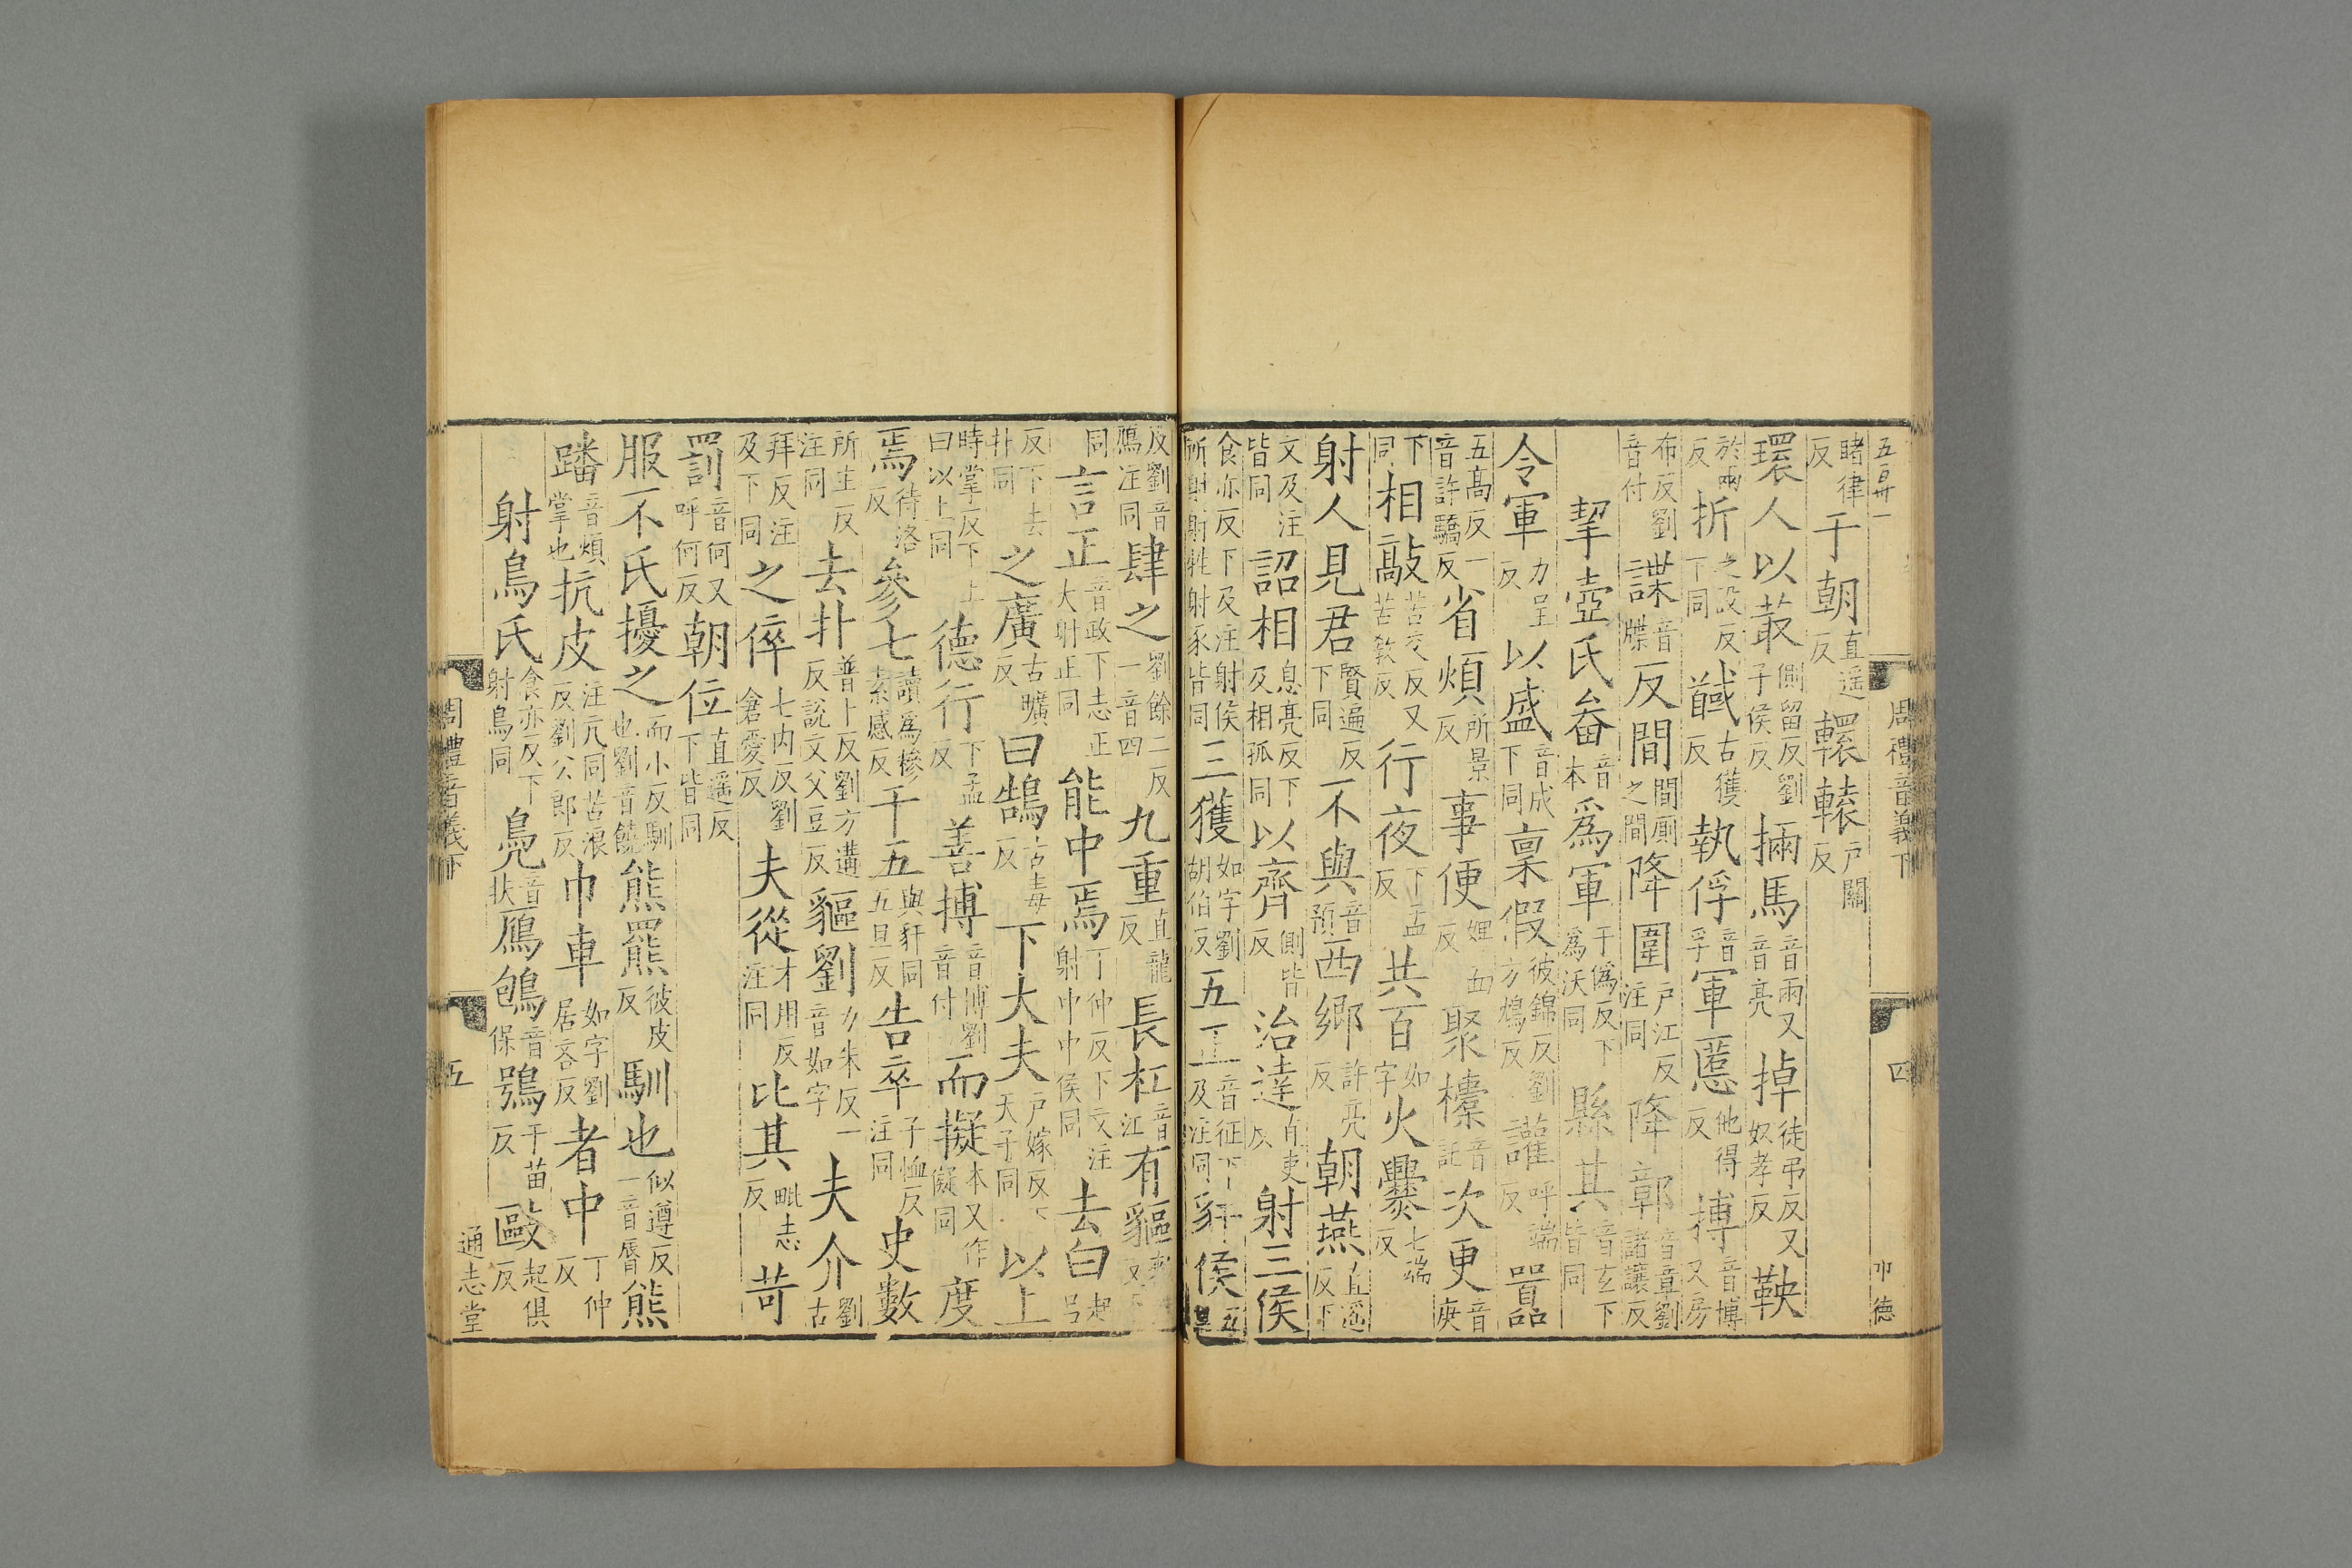 五百卅一
周禮音義下
四
德
睹律反于朝直遥反轘轅戸關反
環人以菆側留反劉子侯反掚馬音兩又音亮掉徒弔反又奴孝反鞅
於兩反折之設反下同馘古獲反執俘音孚軍慝他得反搏音博又房
布反劉音付諜音牒反間間厠之間降圍戸江反注同降鄣音章劉諸讓反
挈壺氏畚音本爲軍于僞反下爲沃同縣其音玄下皆同
令軍力呈反以盛音成下同稟假彼錦反劉方鴆反讙呼端反嚻
五髙反一音許驕反省煩所景反事便婢面反聚㯓音託次更音庚
下同相敲苦交反又苦敎反行夜下孟反共百如字火爨七端反
射人見君賢遍反下同不與音預西鄉許亮反朝燕直遥反下
文及注皆同詔相息亮反下及相孤同以齊側皆反治達直吏反射三侯
食亦反下及注射侯所射斯牲射豕皆同三獲如字劉胡伯反五正音征下及注同豻侯五旦
反劉音鴈注同肆之劉餘二反一音四九重直龍反長杠音江有貙
同言正音政下志正大射正同能中焉丁仲反下文注射中中侯同去白起吕
反下去扑同之廣古曠反曰鵠古毒反下大夫戸嫁反下天子同以上
時掌反下上曰以上同德行下孟反善搏音博劉音付而擬本又作儗同度
焉待洛反參七讀爲糝素感反干五與豻同五旦反告卒子恤反注同史數
所主反注同去扑普卜反劉方遘反說文父豆反貙劉力朱反一音如字夫介劉古
拜反注及下同之倅七内反劉倉愛反夫從才用反注同比其毗志反苛
罰音何又呼何反朝位直遥反下皆同
服不氏擾之而小反馴也劉音饒熊羆彼皮反馴也似遵反一音脣熊
蹯音煩掌也抗皮注亢同苦浪反劉公郎反巾車如字劉居吝反者中丁仲反
射鳥氏食亦反下射鳥同鳧音扶鴈鴇音保鴞于苗反毆起俱反
周禮音義下
五
通志堂